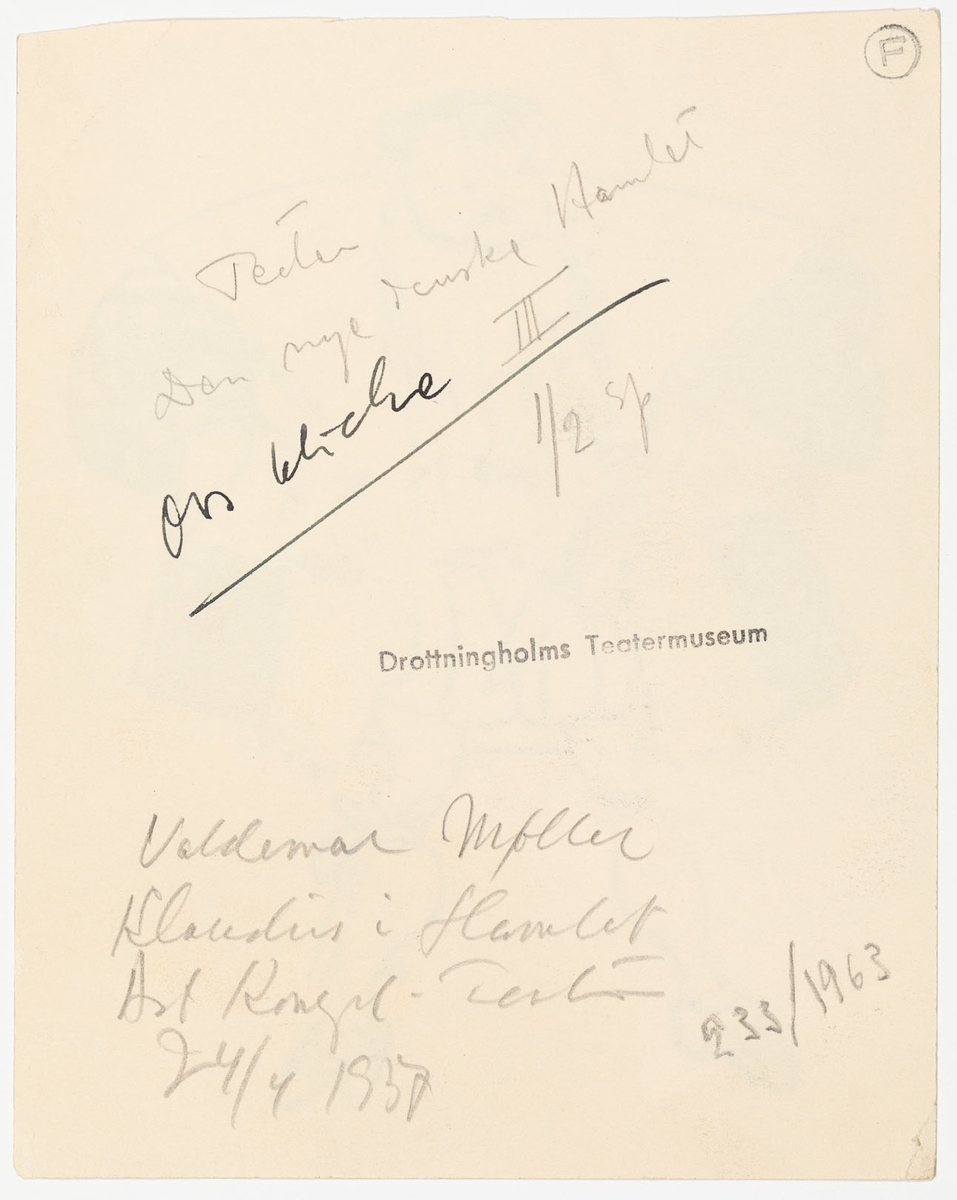 F
Teater
Den nye danske Hamlet
III
Obs kliché
1/2 sp
Drottningholms Teatermuseum
Valdemar Møller
Klaudius i Hamlet
Det Kongel. Teater
24/4 1937
233/1963